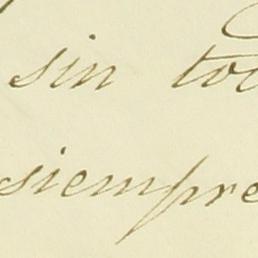 sin
siempre